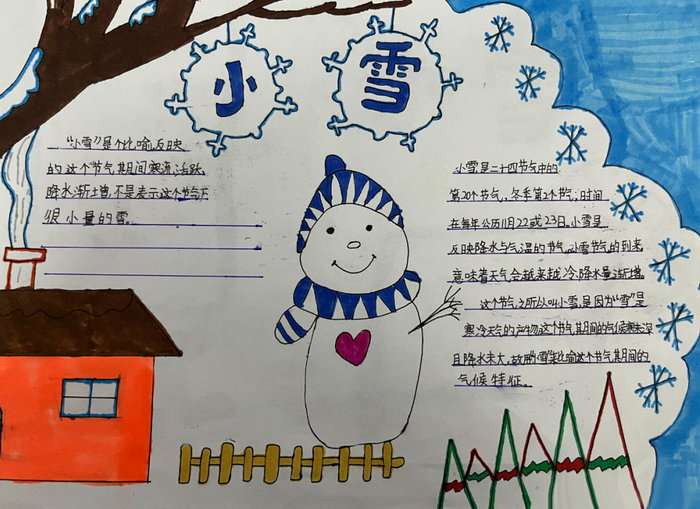 小雪
“小雪”是个比喻,反映
的这个节气期间寒流活跃,
降水渐增,不是表示这个节气下
很小量的雪.
小雪,是二十四节气中的
第20个节气、冬季第2个节气;时间
在每年公历11月22或23日.小雪是
反映降水与气温的节气,小雪节气的到来
意味着天气会越来越冷,降水量渐增.
这个节气之所以叫小雪,是因为“雪”是
寒冷天气的产物,这个节气期间的气候寒未深
且降水未大,故用小雪来比喻这个节气期间的
气候特征.